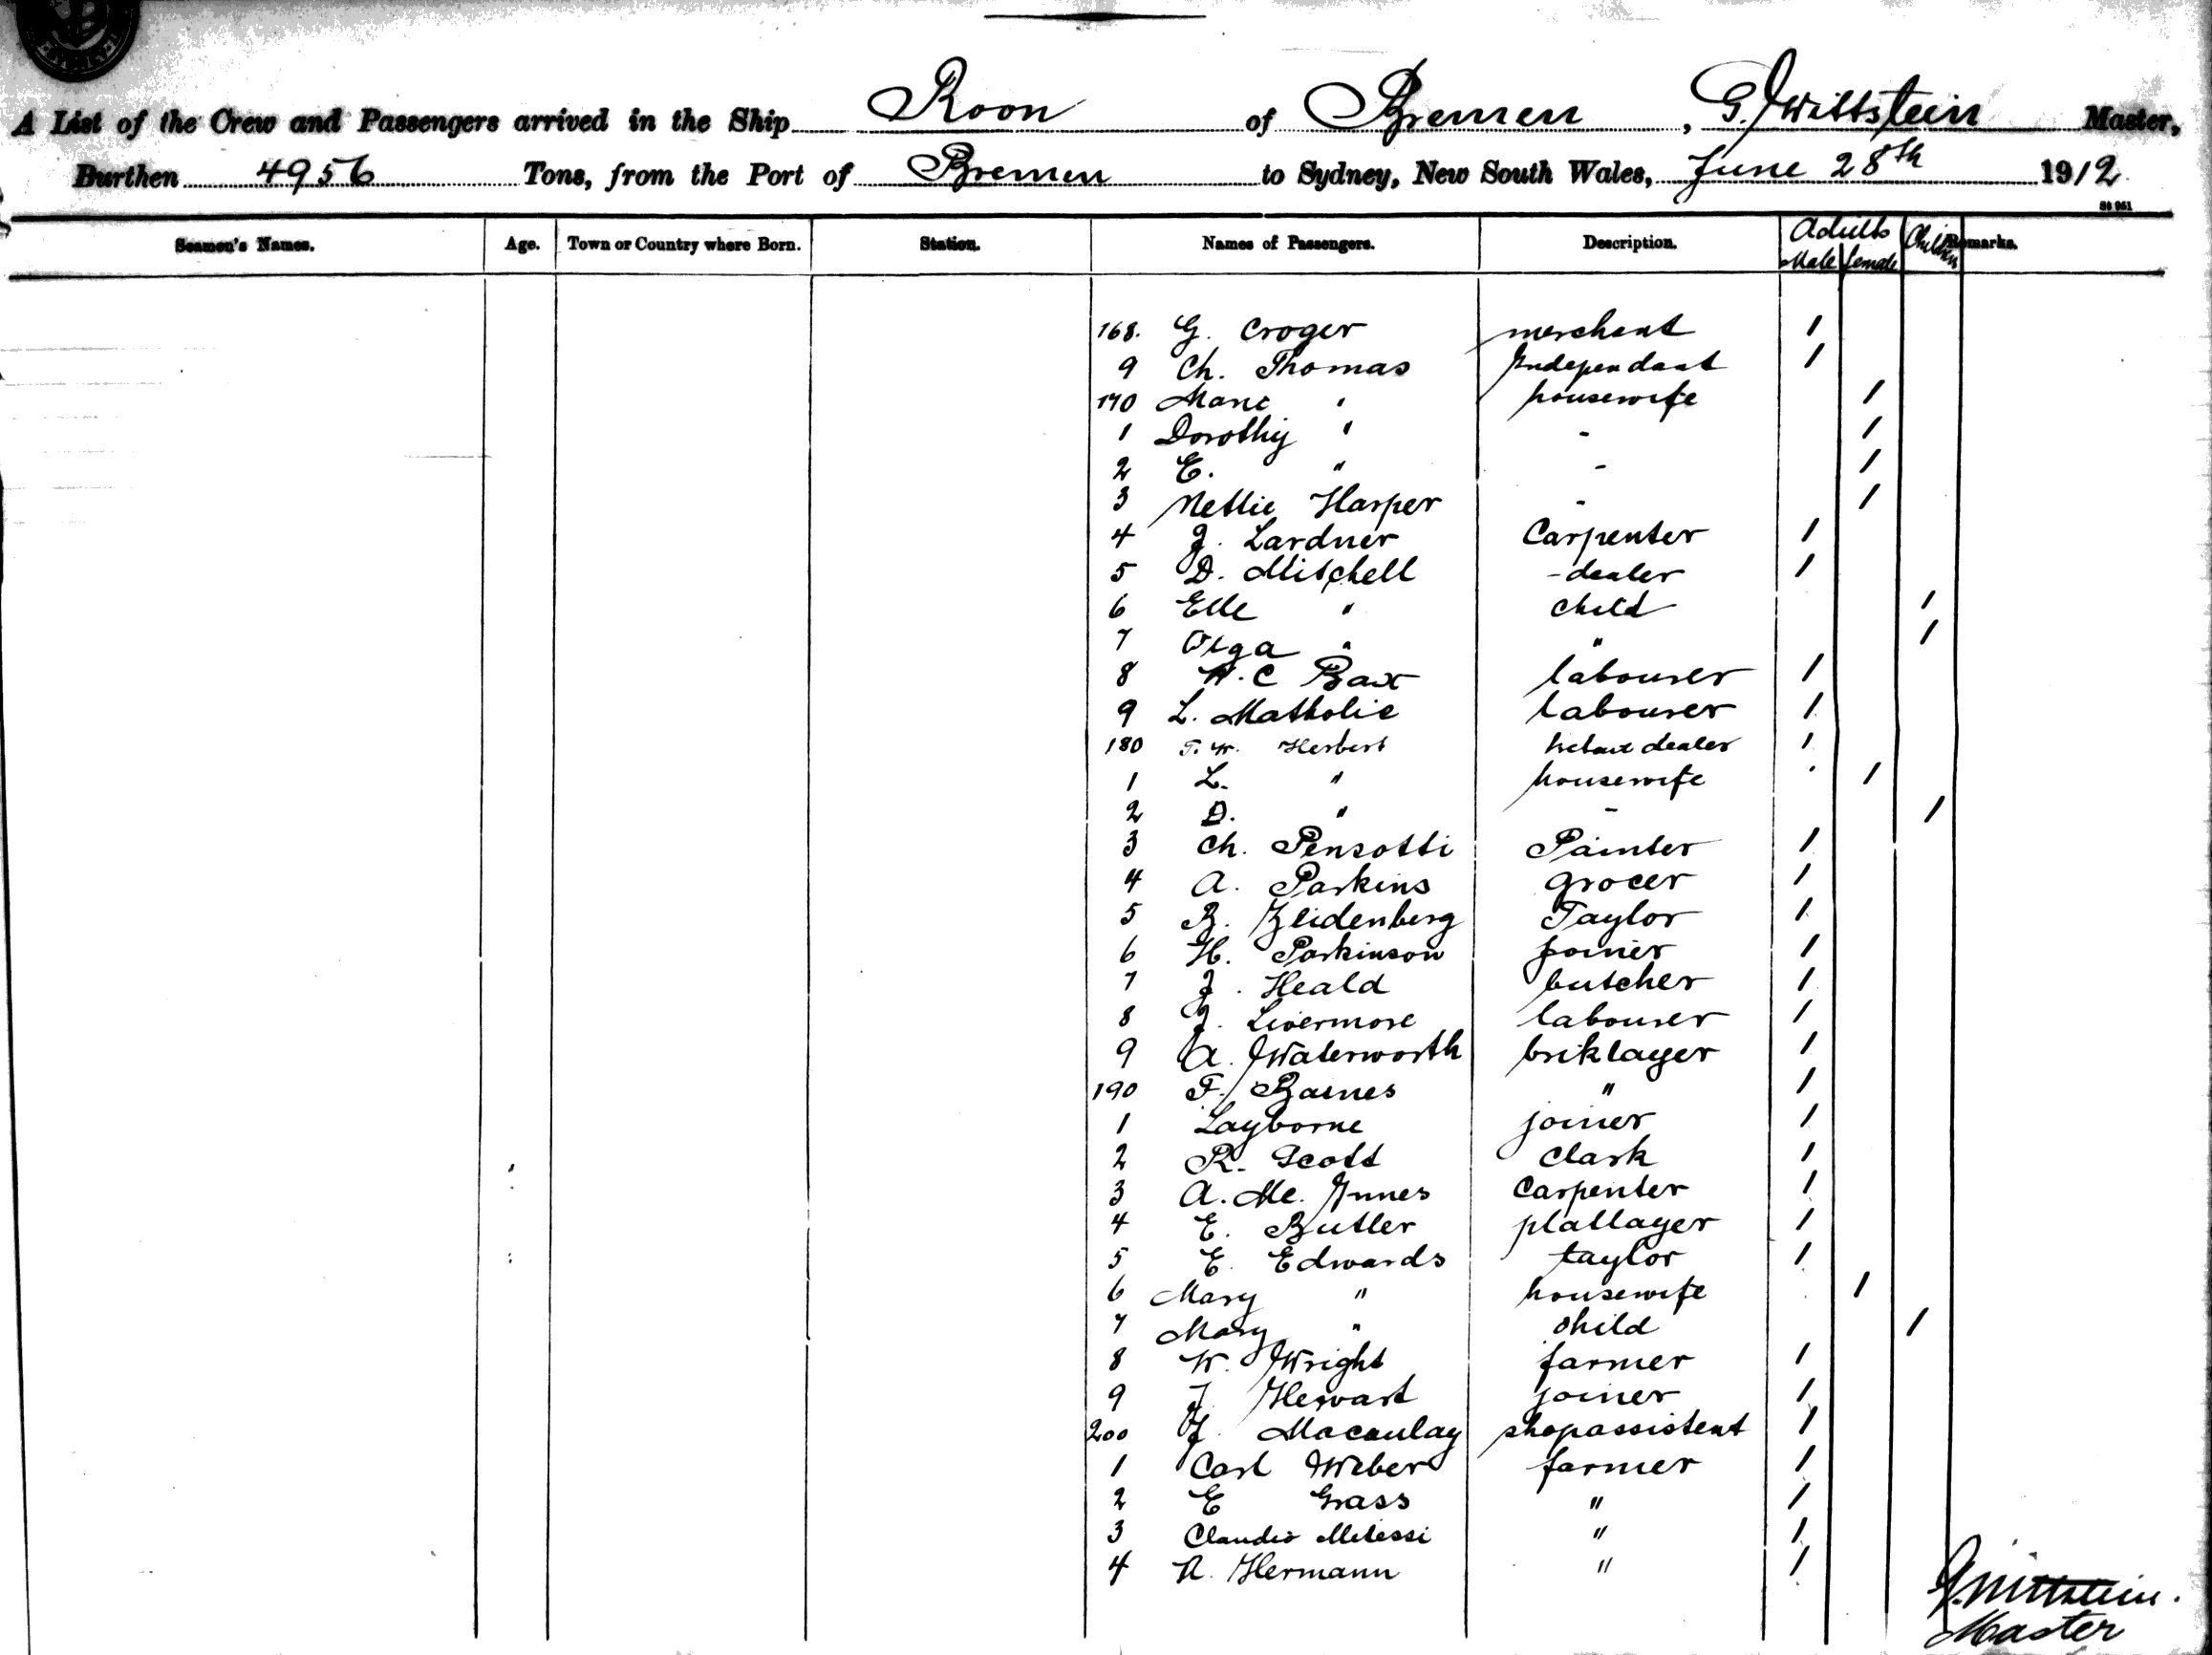 A List of the Crew and Passengers arrived in the Ship Roon of Bremen, G. Wittstein Master,
Burthen 4956 Tons, from the Port of Bremen to Sydney, New South Wales, June 28th 1912
St 961
Seamen's Names. Age. Town or Country where Born. Station. Names of Passengers. Description. Adults Male female Children Remarks.
168. G. Croger merchant 1
9 Ch. Thomas Independant 1
170 Marie " housewife 1
1 Dorothy " - 1
2 E. " - 1
3 Nettie Harper - 1
4 J. Lardner Carpenter 1
5 D. Mitchell - dealer 1
6 Elle " child 1
7 Olga " " 1
8 W. C Bax labourer 1
9 L. Matholie labourer 1
180 T. W. Herbert dealer 1
1 L. " housewife 1
2 D. " - 1
3 Ch. Pensotti Painter 1
4 A. Parkins grocer 1
5 B. Zeidenberg Taylor 1
6 H. Parkinson joiner 1
7 J. Heald butcher 1
8 J. Livermore labourer 1
9 A. Waterworth briklayer 1
190 F. Barnes " 1
1 Layborne joiner 1
2 R. Scott Clark 1
3 A. Mc. Innes Carpenter 1
4 E. Butler platlayer 1
5 E. Edwards taylor 1
6 Mary " housewife 1
7 Mary " child 1
8 W. Wright farmer 1
9 J. Hewart joiner 1
200 J. Macaulay shopassistent 1
1 Carl Weber farmer 1
2 E Grass " 1
3 Claudio Melessi " 1
4 A. Hermann " 1
G. Wittstein.
Master